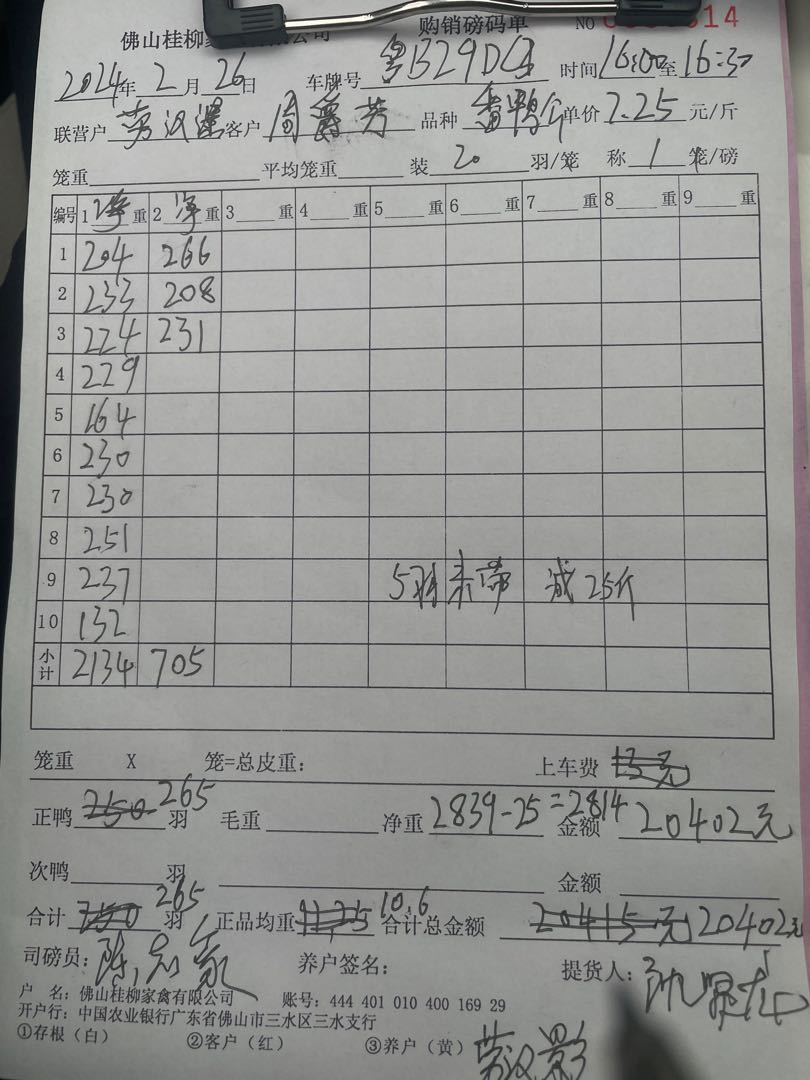 佛山桂柳家 有限公司 购销磅码单 NO 14
2024年 2 月 26 日 车牌号 粤B29D 时间 16:00 至 16:30
联营户 劳汉 客户 周爵芳 品种 番鸭公 单价 7.25 元/斤
笼重 平均笼重 装 20 羽/笼 称 1 笼/磅
编号 1 净 重 2 净 重 3 重 4 重 5 重 6 重 7 重 8 重 9 重
1 204 266
2 233 208
3 224 231
4 229
5 164
6 230
7 230
8 251
9 237 5羽 减25斤
10 132
小计 2134 705
笼重 X 笼=总皮重: 上车费 13元
正鸭 250 265 羽 毛重 净重 2839-25=2814 金额 20402元
次鸭 羽 金额
合计 250 265 羽 正品均重 11.25 10.6 合计总金额 20415元 20402元
司磅员: 陈 养户签名: 提货人:
户 名: 佛山桂柳家禽有限公司 账号: 444 401 010 400 169 29
开户行: 中国农业银行广东省佛山市三水区三水支行
①存根(白) ②客户(红) ③养户(黄) 劳汉